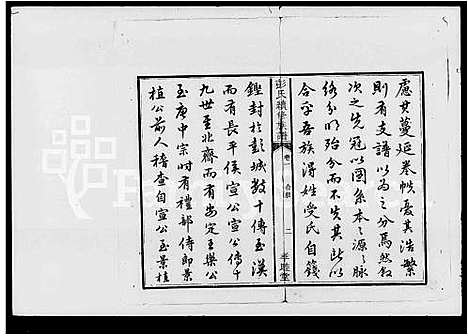 慮其蔓延卷帙憂其浩繁
則有支譜以為之分焉然叙
次之先冠以圖系本之源之脉
絡分明殆分而不失其所以
合乎吾族得姓受氏自籛
彭氏續修族譜
卷一
二
孝睦堂
鏗封於彭城數十傳至漢
而有長平侯宣公宣公傳十
九世至北齊而有安定王樂公
至唐中宗時有禮部侍郎景
植公前人稽查自宣公至景植